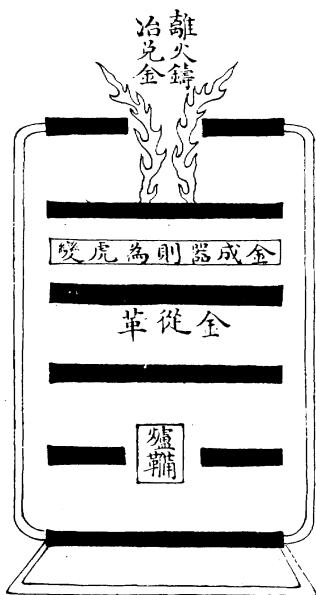 離火鑄
冶兌金
金成器則為虎變
金從革
爐鞴